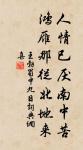 人情已厌南中苦
鸿雁那从北地来
王勃蜀中九日诗典硯
集